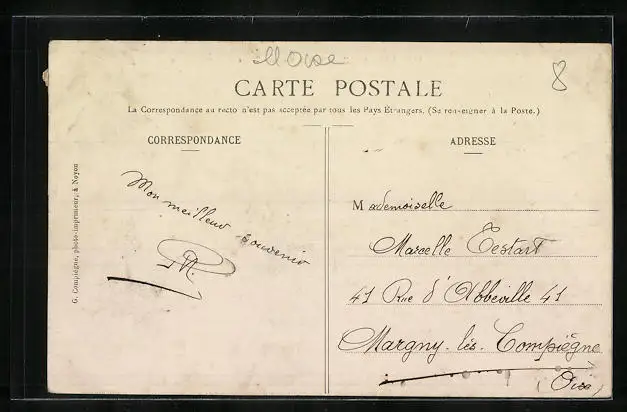 Oise
8
CARTE POSTALE
La Correspondance au recto n'est pas acceptée par tous les Pays Étrangers. (Se renseigner à la Poste.)
CORRESPONDANCE
ADRESSE
G. Compiègne, photo-imprimeur, à Noyon
Mon meilleur souvenir
Mademoiselle
Marcelle Testart
41 Rue d'Abbeville 41
Margny-lès-Compiègne
(Oise)